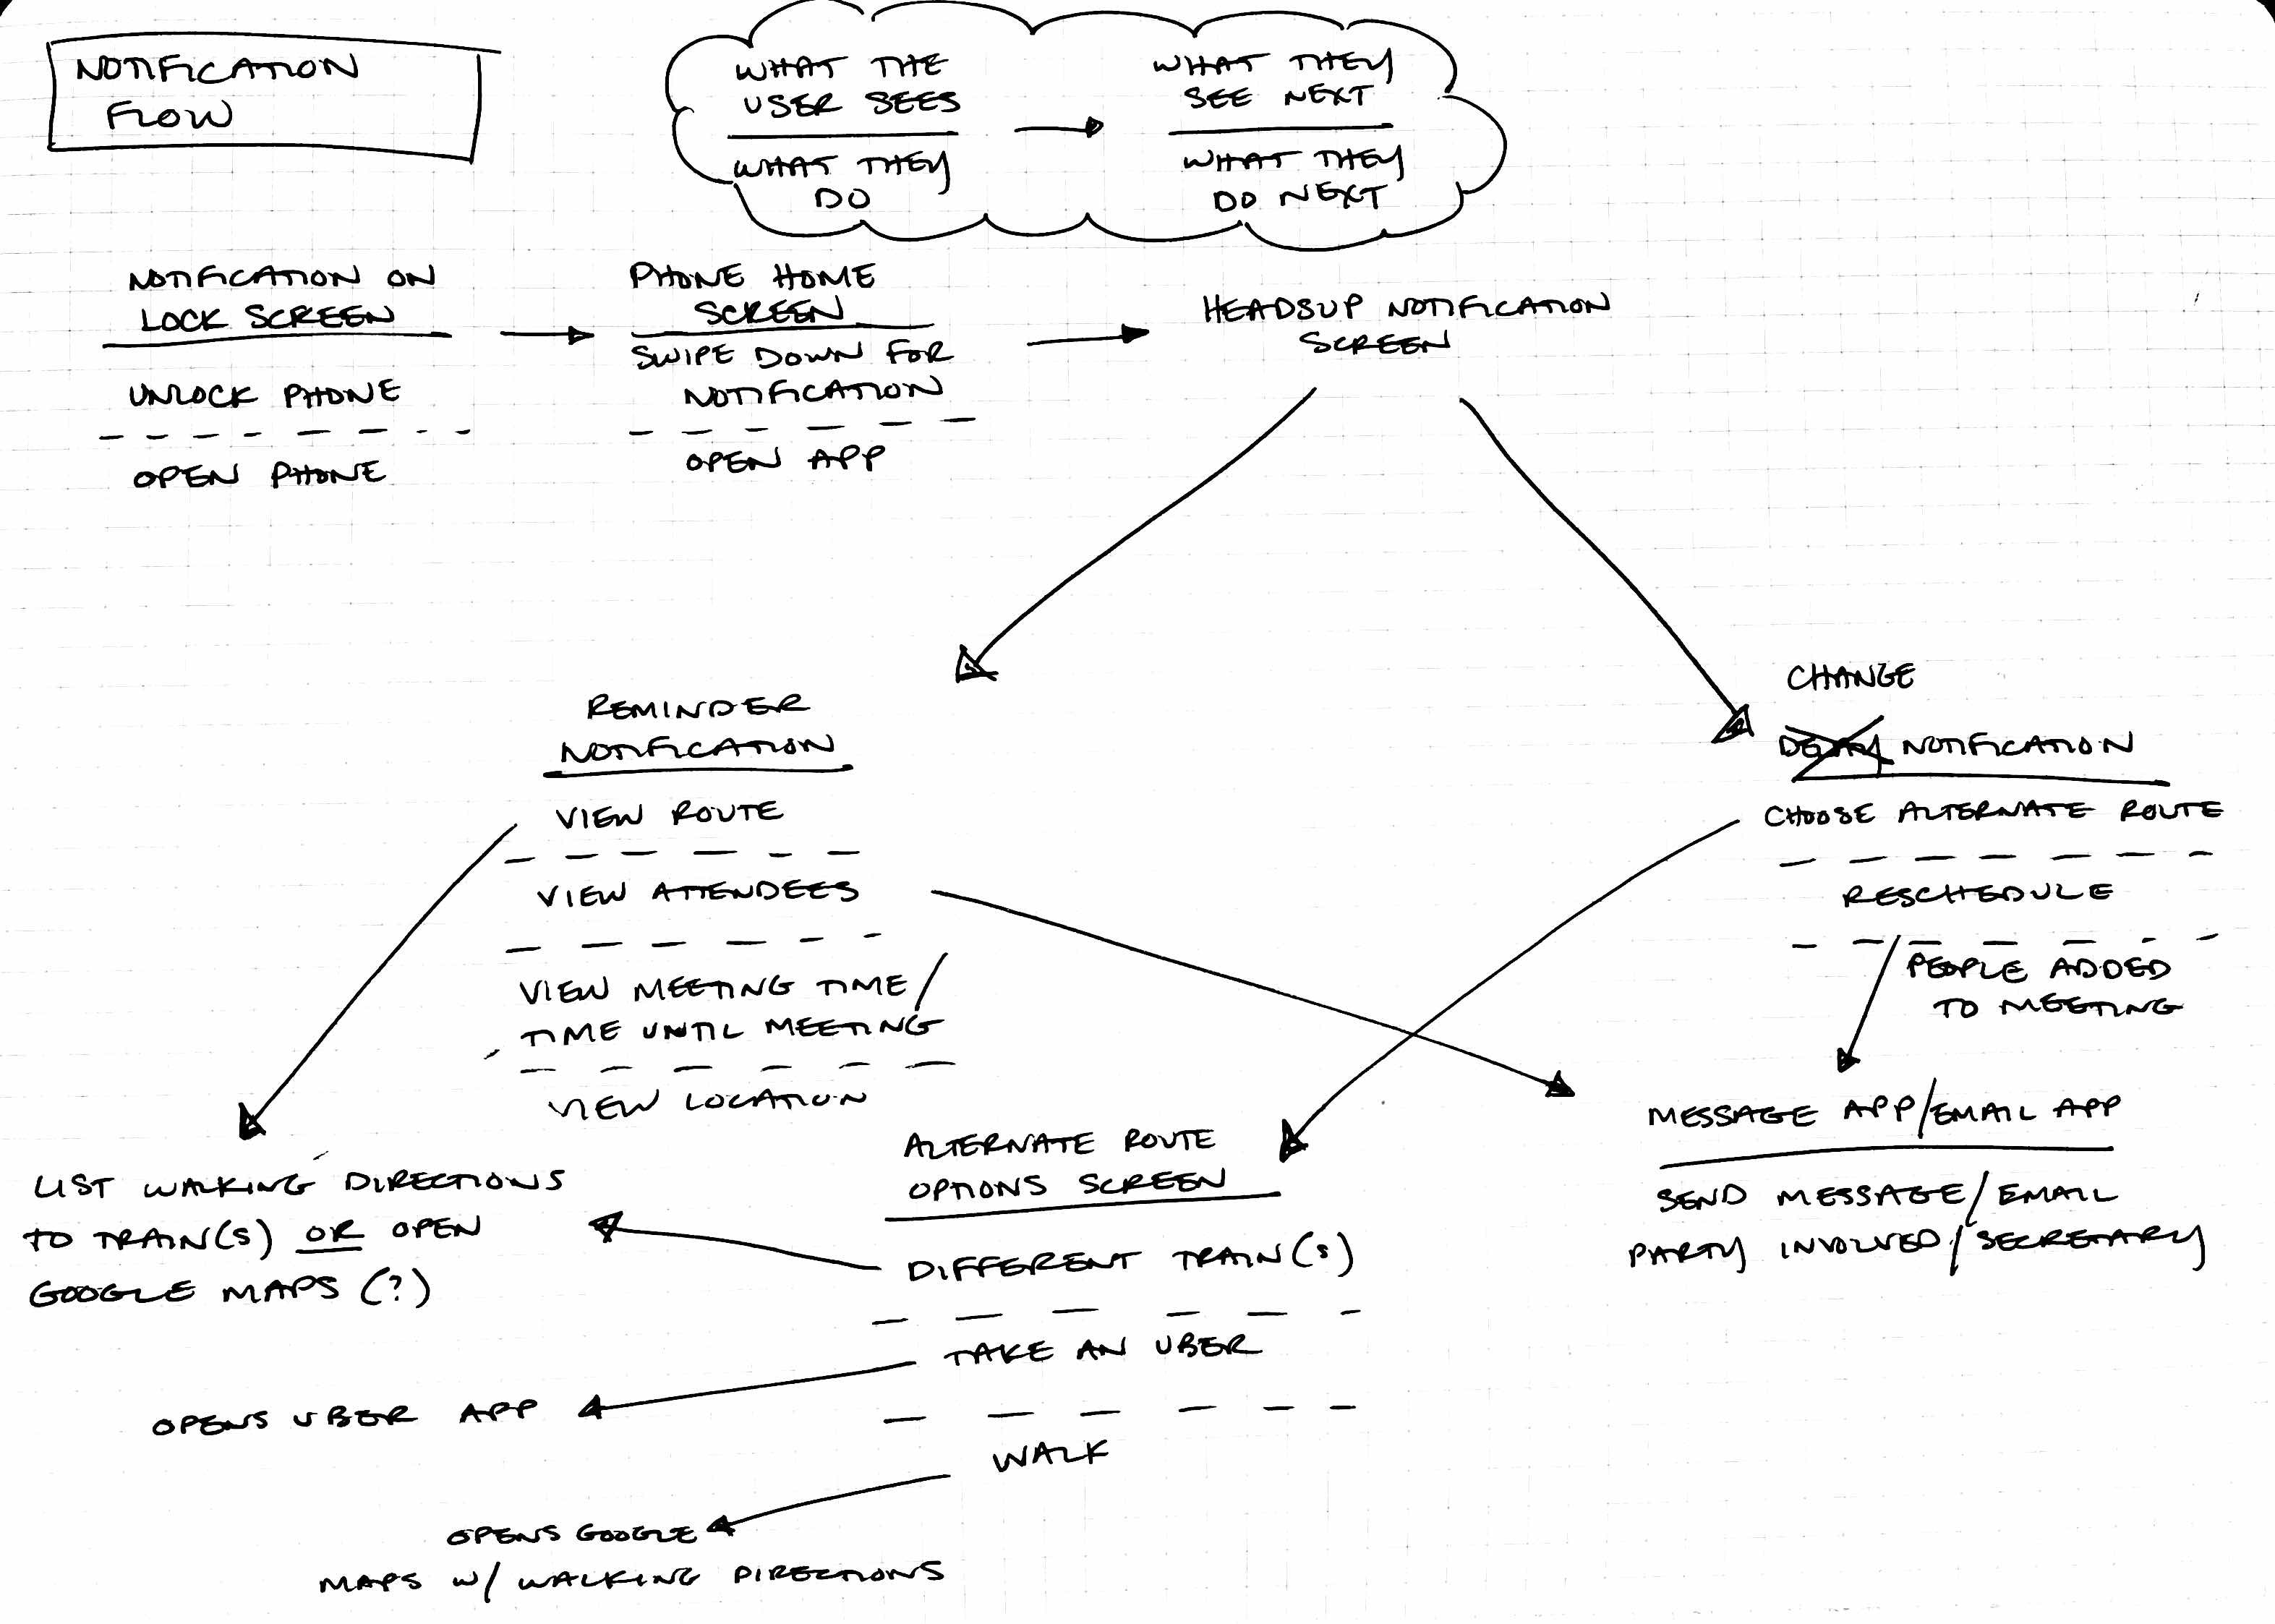 NOTIFICATION
FLOW
WHAT THE
USER SEES
WHAT THEY
DO
WHAT THEY
SEE NEXT
WHAT THEY
DO NEXT
NOTIFICATION ON
LOCK SCREEN
UNLOCK PHONE
OPEN PHONE
PHONE HOME
SCREEN
SWIPE DOWN FOR
NOTIFICATION
OPEN APP
HEADSUP NOTIFICATION
SCREEN
REMINDER
NOTIFICATION
VIEW ROUTE
VIEW ATTENDEES
VIEW MEETING TIME/
TIME UNTIL MEETING
VIEW LOCATION
CHANGE
DELAY NOTIFICATION
CHOOSE ALTERNATE ROUTE
RESCHEDULE
PEOPLE ADDED
TO MEETING
MESSAGE APP/EMAIL APP
SEND MESSAGE/EMAIL
PARTY INVOLVED/SECRETARY
ALTERNATE ROUTE
OPTIONS SCREEN
DIFFERENT TRAIN(S)
TAKE AN UBER
WALK
LIST WALKING DIRECTIONS
TO TRAIN(S) OR OPEN
GOOGLE MAPS (?)
OPENS UBER APP
OPENS GOOGLE
MAPS W/ WALKING DIRECTIONS